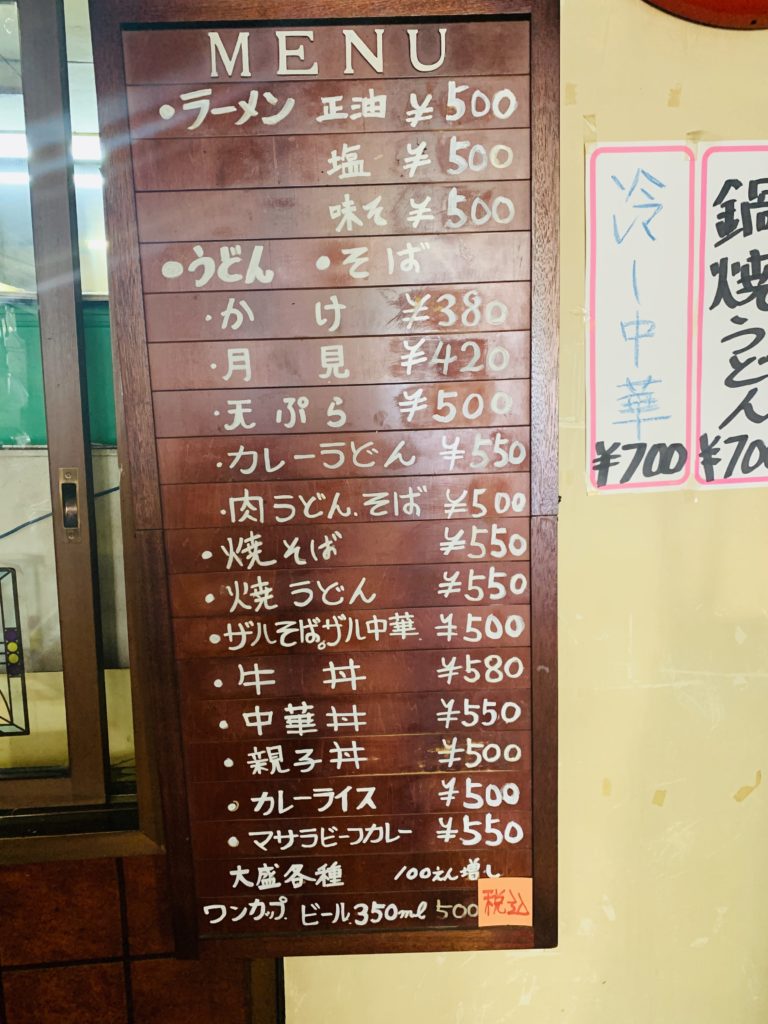 MENU
・ラーメン 正油 ¥500
塩 ¥500
味そ ¥500
・うどん ・そば
・かけ ¥380
・月見 ¥420
・天ぷら ¥500
・カレーうどん ¥550
・肉うどん、そば ¥500
・焼そば ¥550
・焼うどん ¥550
・ザルそば。ザル中華 ¥500
・牛丼 ¥580
・中華丼 ¥550
・親子丼 ¥500
・カレーライス ¥500
・マサラビーフカレー ¥550
大盛各種 100えん増し
ワンカップ ビール.350ml 500 税込
冷し中華
¥700
鍋焼うどん
¥700